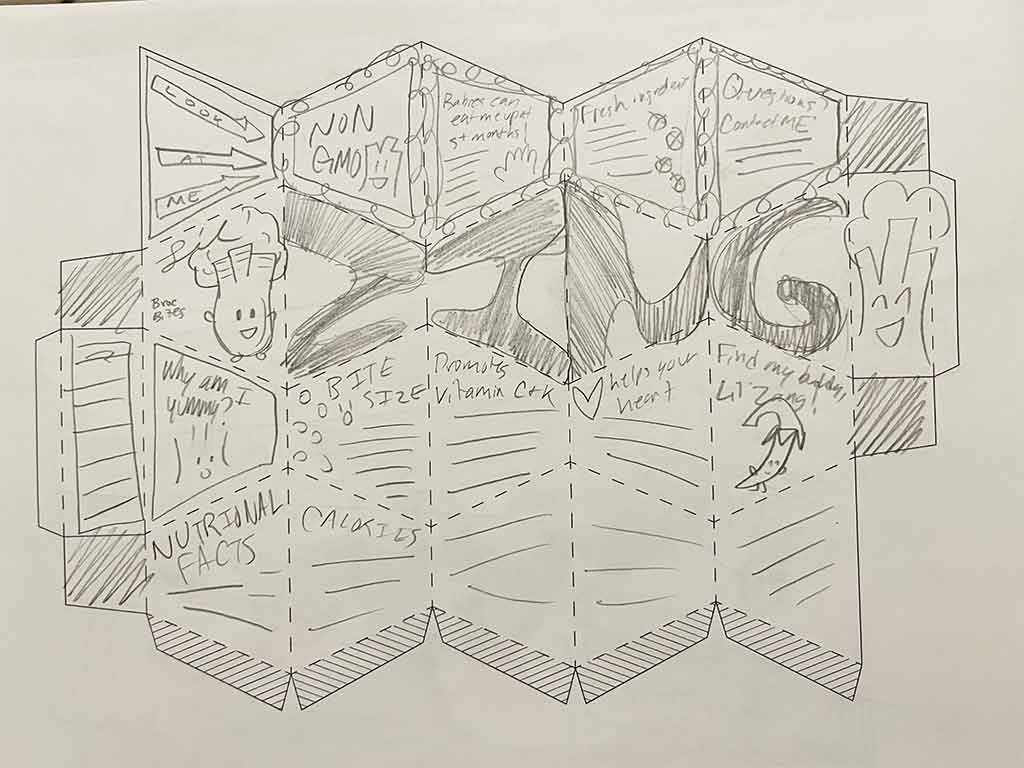 LOOK
AT
ME
NON
GMO
Babies can
eat me up at
st months!
Fresh ingredient
Questions?
Contact ME
ZING
Broc
Bites
Why am I
yummy?
!!!
BITE
SIZE
Promotes
Vitamin C+K
helps your
heart
Find my buddy,
Lil Zang!
NUTRIONAL
FACTS
CALORIES